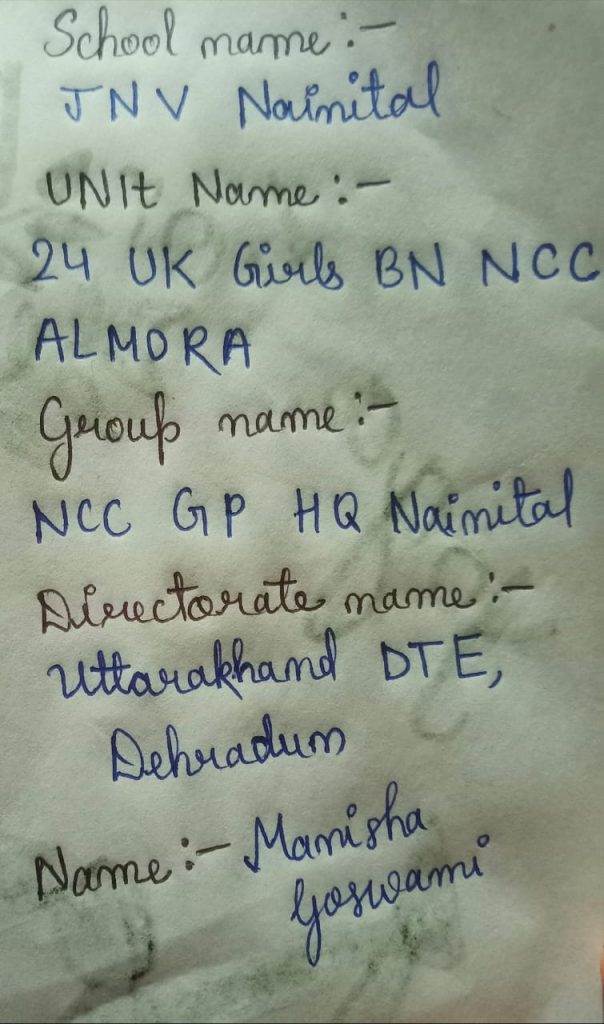 School name :-
JNV Nainital
UNIt Name :-
24 UK Girls BN NCC
ALMORA
Group name :-
NCC GP HQ Nainital
Directorate name :-
Uttarakhand DTE,
Dehradun
Name :- Manisha
Goswami